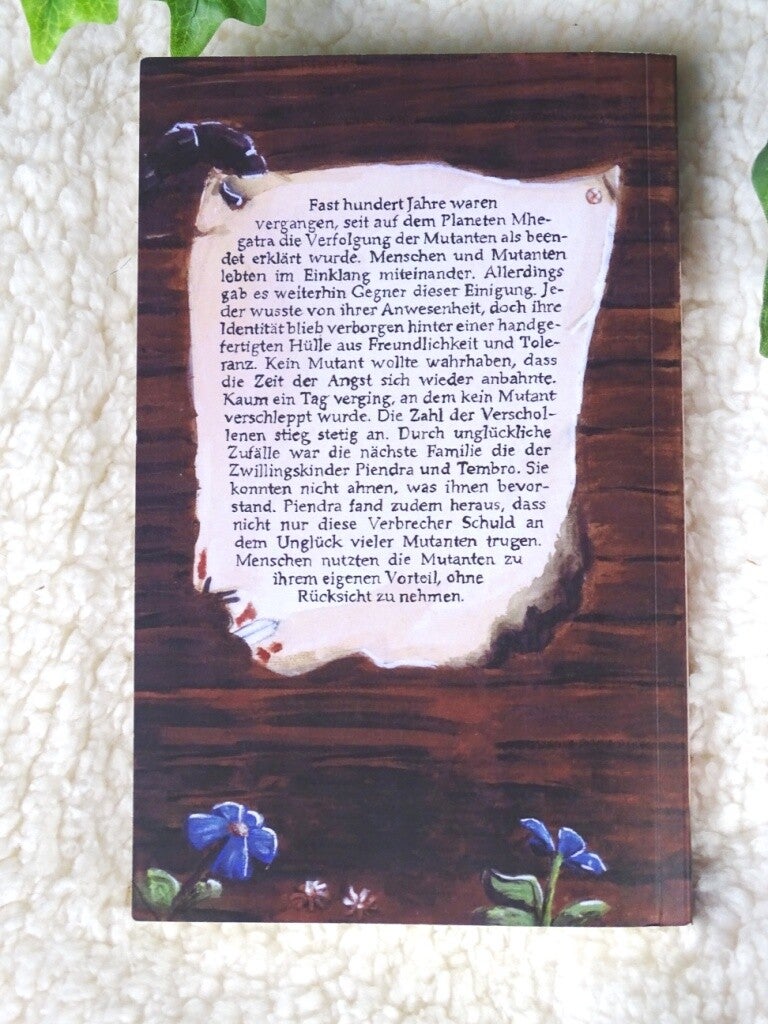 Fast hundert Jahre waren
vergangen, seit auf dem Planeten Mhe-
gatra die Verfolgung der Mutanten als been-
det erklärt wurde. Menschen und Mutanten
lebten im Einklang miteinander. Allerdings
gab es weiterhin Gegner dieser Einigung. Je-
der wusste von ihrer Anwesenheit, doch ihre
Identität blieb verborgen hinter einer handge-
fertigten Hülle aus Freundlichkeit und Tole-
ranz. Kein Mutant wollte wahrhaben, dass
die Zeit der Angst sich wieder anbahnte.
Kaum ein Tag verging, an dem kein Mutant
verschleppt wurde. Die Zahl der Verschol-
lenen stieg stetig an. Durch unglückliche
Zufälle war die nächste Familie die der
Zwillingskinder Piendra und Tembro. Sie
konnten nicht ahnen, was ihnen bevor-
stand. Piendra fand zudem heraus, dass
nicht nur diese Verbrecher Schuld an
dem Unglück vieler Mutanten trugen.
Menschen nutzten die Mutanten zu
ihrem eigenen Vorteil, ohne
Rücksicht zu nehmen.